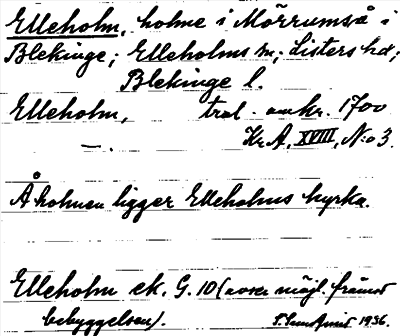 Elleholm, holme i Mörrumså i
Blekinge; Elleholms sn, Listers hd,
Blekinge l.
Elleholm, tral. omkr. 1700
—„— Kr. A, XVIII, N:o 3.
Å holmen ligger Elleholms kyrka.
Elleholm ek. G. 10 (avser möjl. främst
bebyggelsen). 1936.